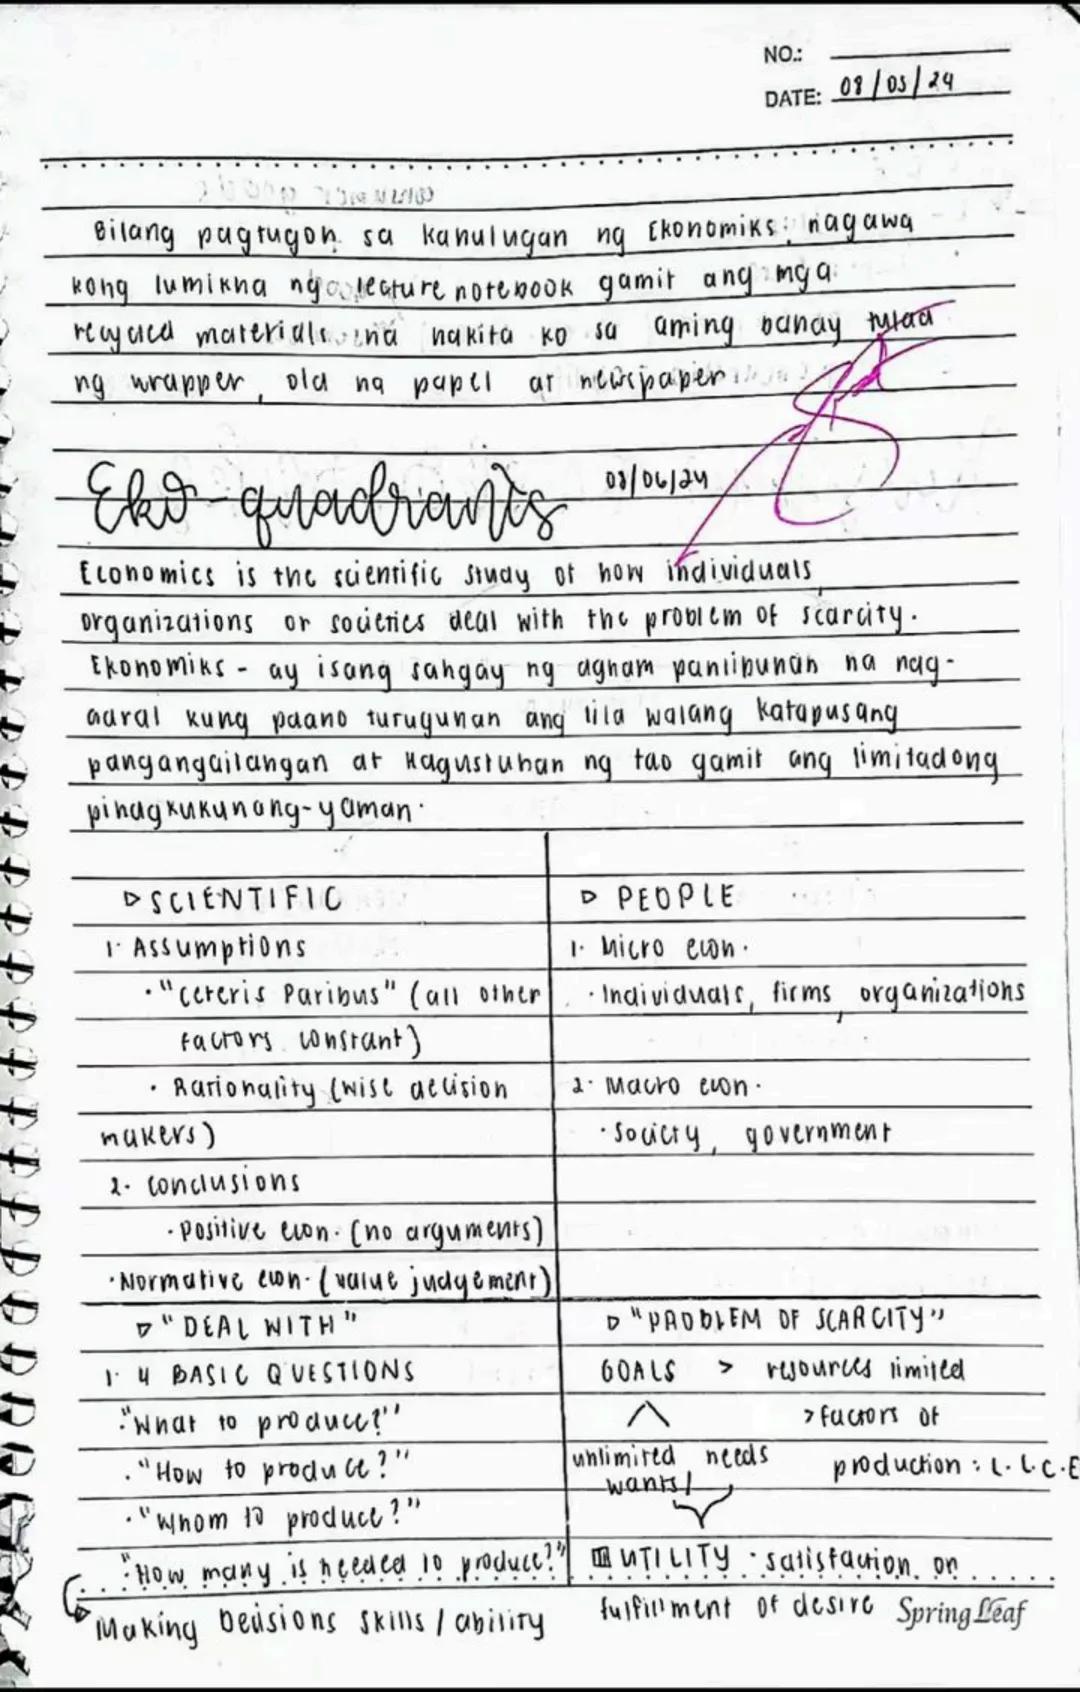 NO.:
DATE: 08/05/24
Bilang pagtugon sa kahulugan ng Ekonomiks, nagawa
kong lumikha ng lecture notebook gamit ang mga
recycled materials na nakita ko sa aming bahay tulad
ng wrapper, old na papel at newspaper
Eko-quadrants 08/06/24
Economics is the scientific study of how individuals
organizations or societies deal with the problem of scarcity.
Ekonomiks - ay isang sangay ng agham panlipunan na nag-
aaral kung paano tutugunan ang tila walang katapusang
pangangailangan at kagustuhan ng tao gamit ang limitadong
pinagkukunang-yaman.
▷ SCIENTIFIC
1. Assumptions
· "Ceteris Paribus" (all other
factors constant)
· Rationality (wise decision
makers)
2. Conclusions
· Positive econ. (no arguments)
· Normative econ. (value judgement)
▷ PEOPLE
1. Micro econ.
· Individuals, firms, organizations
2. Macro econ.
· Society, government
▷ "DEAL WITH"
1. 4 BASIC QUESTIONS
· "What to produce?"
· "How to produce?"
· "Whom to produce?"
· "How many is needed to produce?"
Making Decisions skills / ability
▷ "PROBLEM OF SCARCITY"
GOALS > resources limited
> factors of
unlimited needs production: L.L.C.E
wants/
UTILITY · satisfaction or
fulfillment of desire
Spring Leaf